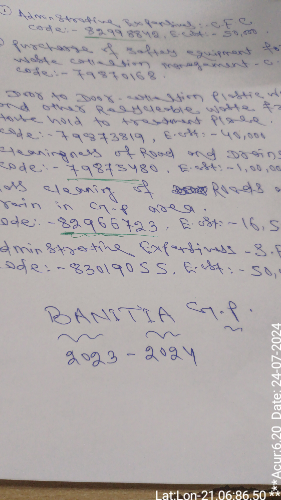 Administrative Expenses:- CFC
code:- 82998848, E.cost:- 50,00
purchase of safety equipment for
waste collection management - G
code:- 79870168.
Door to Door collection plastic w
and other Recyclable waste
to be hold to treatment place.
code:- 79873819, E.cost:- 40,000
cleaningness of Road and Drains
code:- 79875480, E.cost:- 1,00,00
cleaning of Roads a
rain in G.P area.
ode:- 82966723. E.cost:- 16,5
dministrative Expenses - S.F
ode:- 83019055. E.cost:- 50,
BANITIA G.P.
2023 - 2024
Lat:Lon-21.06:86.50
***Acur:6.20 Date: 24-07-2024